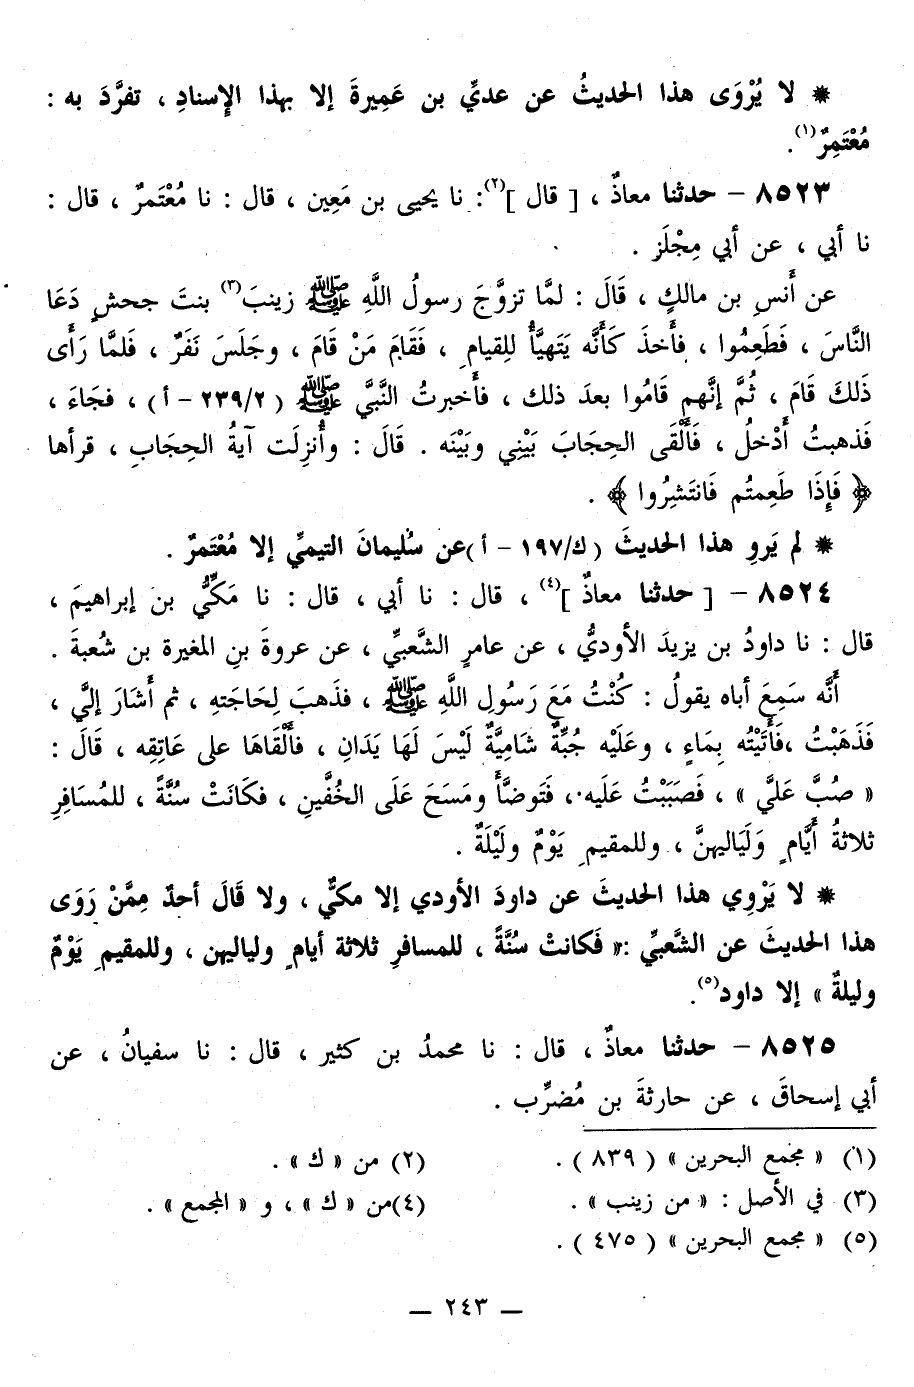 * لا يُرْوَى هذا الحديثُ عن عديِّ بن عَمِيرةَ إلا بهذا الإسنادِ ، تفرَّدَ به :
مُعْتَمِرٌ(١).
٨٥٢٣ – حدثنا معاذٌ ، [ قال ](٢): نا يحيى بن مَعِين ، قال : نا مُعْتَمرٌ ، قال :
نا أبي ، عن أبي مِجْلَز .
عن أَنسِ بن مالكٍ ، قَالَ : لمَّا تزوَّجَ رسولُ اللَّهِ ﷺ زينبَ(٣) بنتَ جحشٍ دَعَا
النَّاسَ ، فَطَعِمُوا ، فأَخذَ كَأَنَّه يَتَهيَّأُ لِلقيامِ ، فَقَامَ مَنْ قَامَ ، وجَلَسَ نَفَرٌ ، فَلمَّا رَأَى
ذَلكَ قَامَ ، ثُمَّ إنَّهم قَامُوا بعدَ ذلك ، فأَخبرتُ النَّبيَّ ﷺ ( ٢/ ٢٣٩ – أ ) ، فجَاءَ ،
فَذهبتُ أَدْخلُ ، فَأَلْقَى الحِجَابَ بَيْنِي وبَيْنَه . قَالَ : وأُنزِلَت آيةُ الحِجَابِ ، قرأها
﴿ فَإِذَا طَعِمتُم فَانتَشِرُوا ﴾ .
* لم يَروِ هذا الحديثَ ( ك/ ١٩٧ – أ )عن سُليمانَ التيميِّ إلا مُعْتمرٌ .
٨٥٢٤ – [ حدثنا معاذٌ ](٤) ، قال : نا أبي ، قال : نا مَكيُّ بن إبراهيمَ ،
قال : نا داودُ بن يزيدَ الأوديُّ ، عن عامرٍ الشَّعبيِّ ، عن عروةَ بنِ المغيرة بن شُعبةَ .
أَنَّه سَمِعَ أباه يقولُ : كُنْتُ مَعَ رَسُولِ اللَّهِ ﷺ ، فذَهبَ لِحَاجَتهِ ، ثم أَشَارَ إليَّ ،
فَذَهَبْتُ ،فَأَتَيْتُه بِمَاءٍ ، وعَلَيْه جُبَّةٌ شَامِيَّةٌ لَيْسَ لَهَا يَدَانِ ، فأَلْقَاهَا على عَاتِقِه ، قَالَ :
« صُبَّ عَلَيَّ » ، فَصَبَبْتُ عَلَيه ، فَتَوضَّأَ ومَسَحَ عَلَى الخُفَّينِ ، فكَانَتْ سُنَّةً ، للمُسَافِرِ
ثلاثةُ أَيَّامٍ وَلَيَاليهنَّ ، وللمقيمِ يَوْمٌ ولَيْلَةٌ .
* لا يَرْوِي هذا الحديثَ عن داودَ الأودي إلا مكيٌّ ، ولا قَالَ أحدٌ مِمَّنْ رَوَى
هذا الحديثَ عن الشَّعبيِّ :« فَكانتْ سُنَّةً ، للمسافرِ ثلاثة أيامٍ ولياليهن ، وللمقيمِ يَوْمٌ
وليلةٌ » إلا داود(٥).
٨٥٢٥ – حدثنا معاذٌ ، قال : نا محمدُ بن كثير ، قال : نا سفيانُ ، عن
أبي إسحاقَ ، عن حارثةَ بن مُضرِّب .
(١) « مجمع البحرين » ( ٨٣٩ ) .
(٢) من « ك » .
(٣) في الأصل : « من زينب » .
(٤)من « ك » ، و « المجمع » .
(٥) « مجمع البحرين » ( ٤٧٥ ) .
— ٢٤٣ —